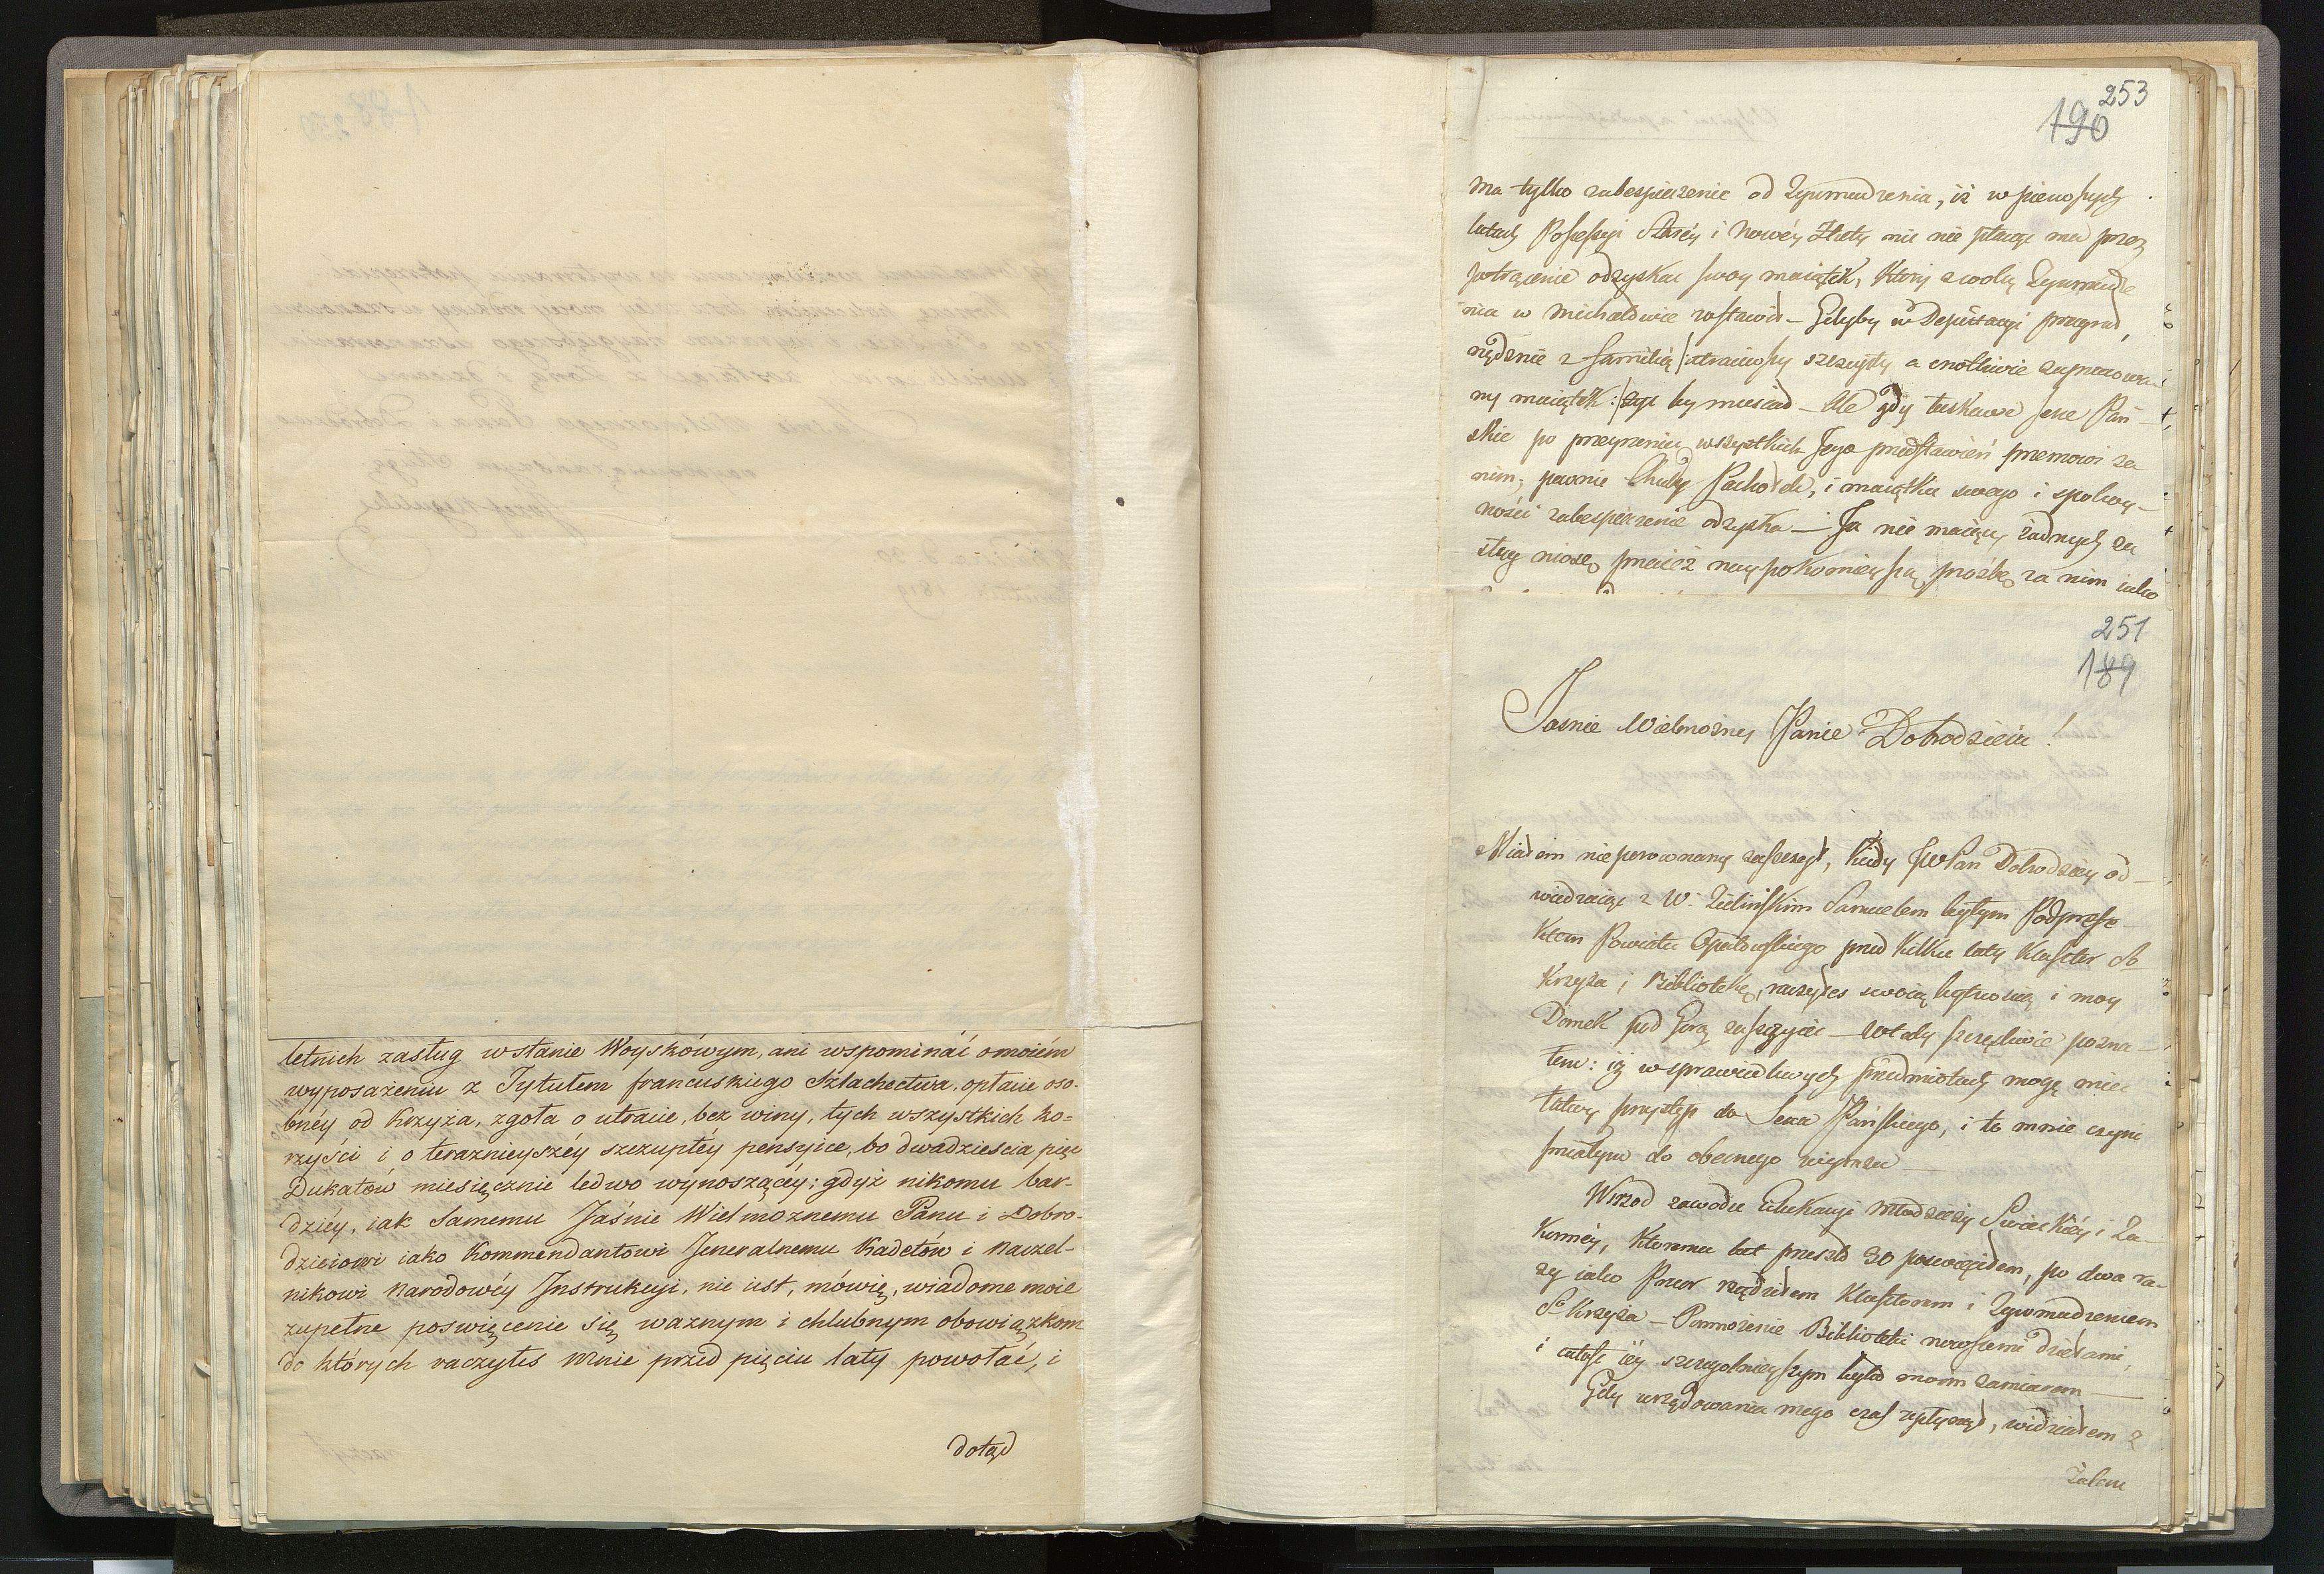 letnich zasług w stanie Woyskówym, ani wspominać o moiém
wyposażeniu z Tytułem francuskiego Szlachectwa, opłacie oso-
bnéy od Krzyża, zgoła o utracie, bez winy, tych wszystkich ko-
rzyści i o teraznieyszéy szczupłéy pensyice, bo dwadziescia pięć
Dukatów miesięcznie ledwo wynoszącéy; gdyż nikomu bar-
dziéy, iak Samemu Jaśnie Wielmoznemu Panu i Dobro-
dzieiowi iako Kommendantowi Jeneralnemu Kadetów i Naczel-
nikowi Narodowéy Instrukcyi, nie iest, mówię, wiadome moie
zupełne poswięcenie się waznym i chlubnym obowiązkom
do których raczyłes mnie przed pięciu laty powołać, i
dotąd
253
190
ma tylko zabespieczenie od Zgromadzenia, iż w pierwszych
latach Possessyi Staréy i Nowéy Huty nic nie płacąc ma przez
potrącenie odzyskać swoy maiątek, który z wolą Zgromadze
nia w Michałowie zostawił – Gdyby w Deputacyi przegrał,
nędznie z familią /:utraciwszy szczupły a cnotliwie zapracowa
ny maiątek:/ żyć by musiał – Ale gdy łaskawe serce Pań-
skie po przeyrzeniu wszystkich Jego przedstawień przemowi za
nim, pewnie Chudy Pachołek, i maiątku swego i spokoy-
ności zabespieczenie odzyska – Ja nie maiący żadnych za
sług niosę przecież naypokornieyszą proźbę za nim iako
251
189
Jasnie Wielmożny Panie Dobrodzieiu!
Miałem nieporownany zaszczyt, kiedy JW Pan Dobrodziey od-
wiedzaiąc z W. Zielińskim Samuelem byłym Podprefe-
ktem Powiatu Opatowskiego przed kilku laty Klasztor S
Krzyża, i Bibliotekę, raczyłes swoią bytnością i moy
Domek pod Górą zaszczycić – wtedy szczęśliwie pozna-
łem: iż w sprawiedliwych przedmiotach mogę mieć
łatwy przystęp do Serca Pańskiego, i to mnie czyni
smiałym do obecnego wyrazu –
Wśrod zawodu Edukacyi młodzieży Swieckiéy i Za-
konnéy, któremu lat przeszło 30 poswięciłem, po dwa ra-
zy iako Przeor rządziłem Klasztorem i Zgromadzeniem
S. Krzyża – Pomnożenie Biblioteki nowszemi dziełami,
i całość iéy szczegolnieyszym było moim zamiarem –
Gdy urzędowania mego czas upłynął, widziałem z
żalem